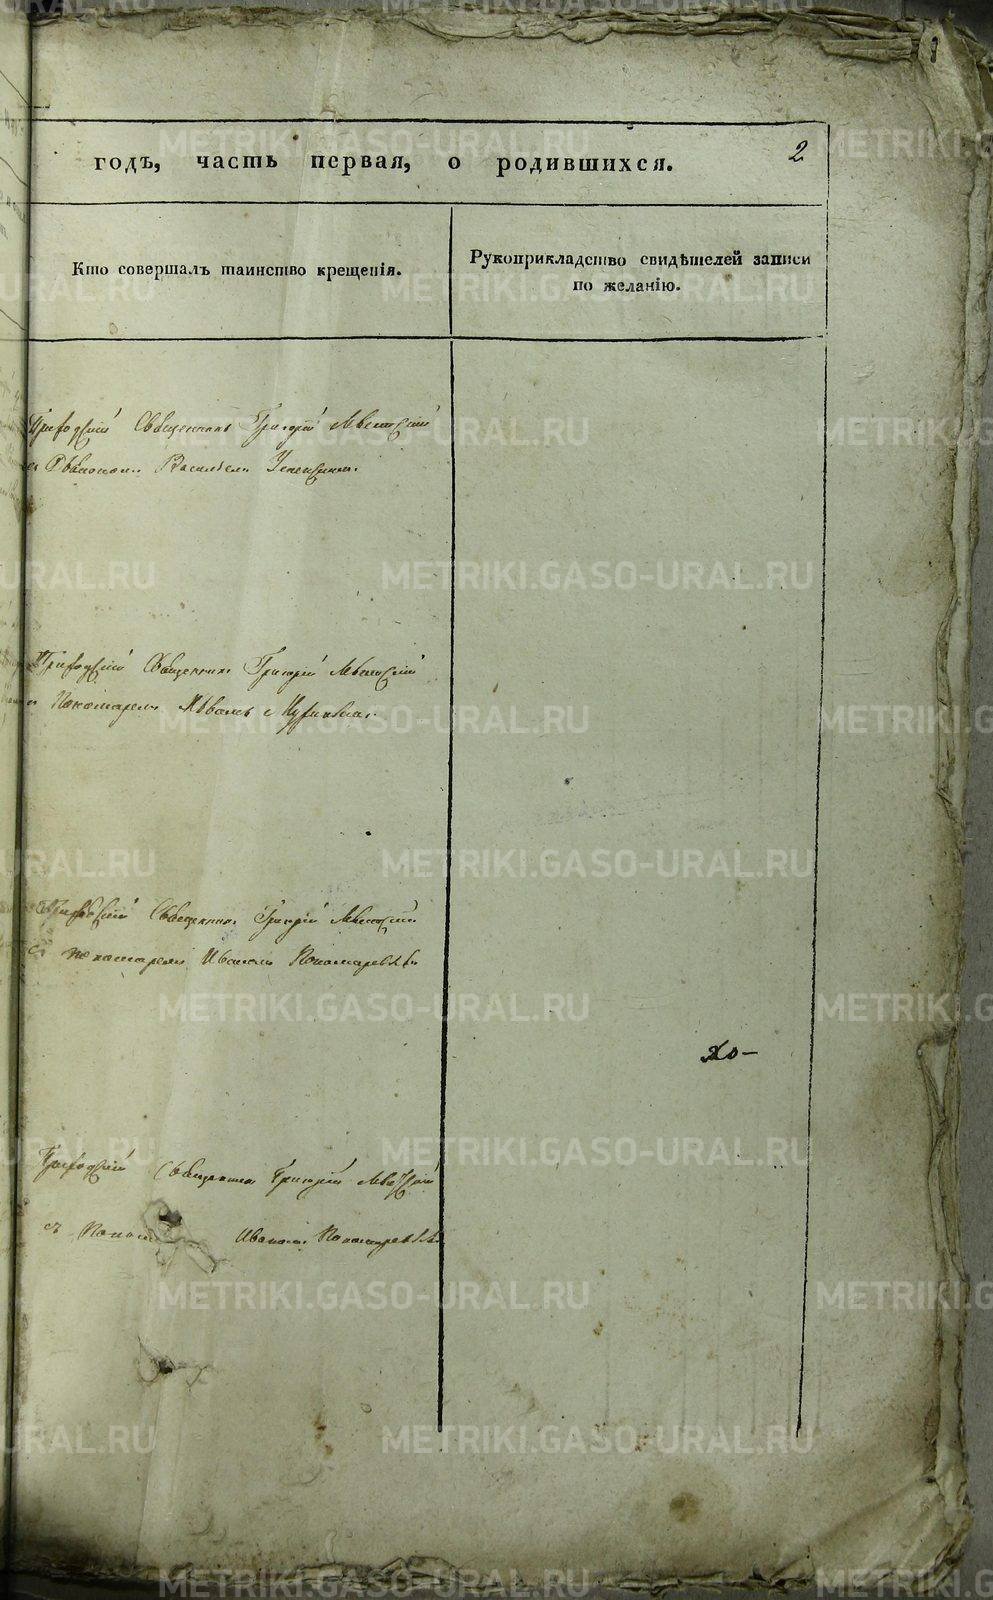 годъ, часть первая, о родившихся. 2
Кто совершалъ таинство крещенія.
Рукоприкладство свидѣтелей записи
по желанію.
Приходскій Священникъ Григорій
съ Дьякономъ Василіемъ
Приходскій Священникъ Григорій
съ Пономаремъ
Приходскій Священникъ Григорій
съ пономаремъ Иваномъ Пономаревымъ
Приходскій Священникъ Григорій
съ Поном Иваномъ Пономаревымъ
METRIKI.GASO-URAL.RU